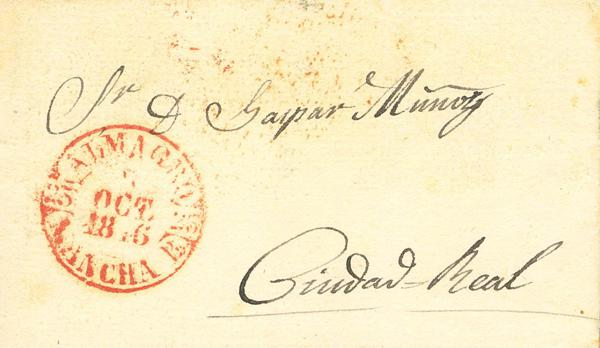 Sr D Gaspar Muñoz
ALMAGRO
OCT.
MANCHA
Ciudad-Real